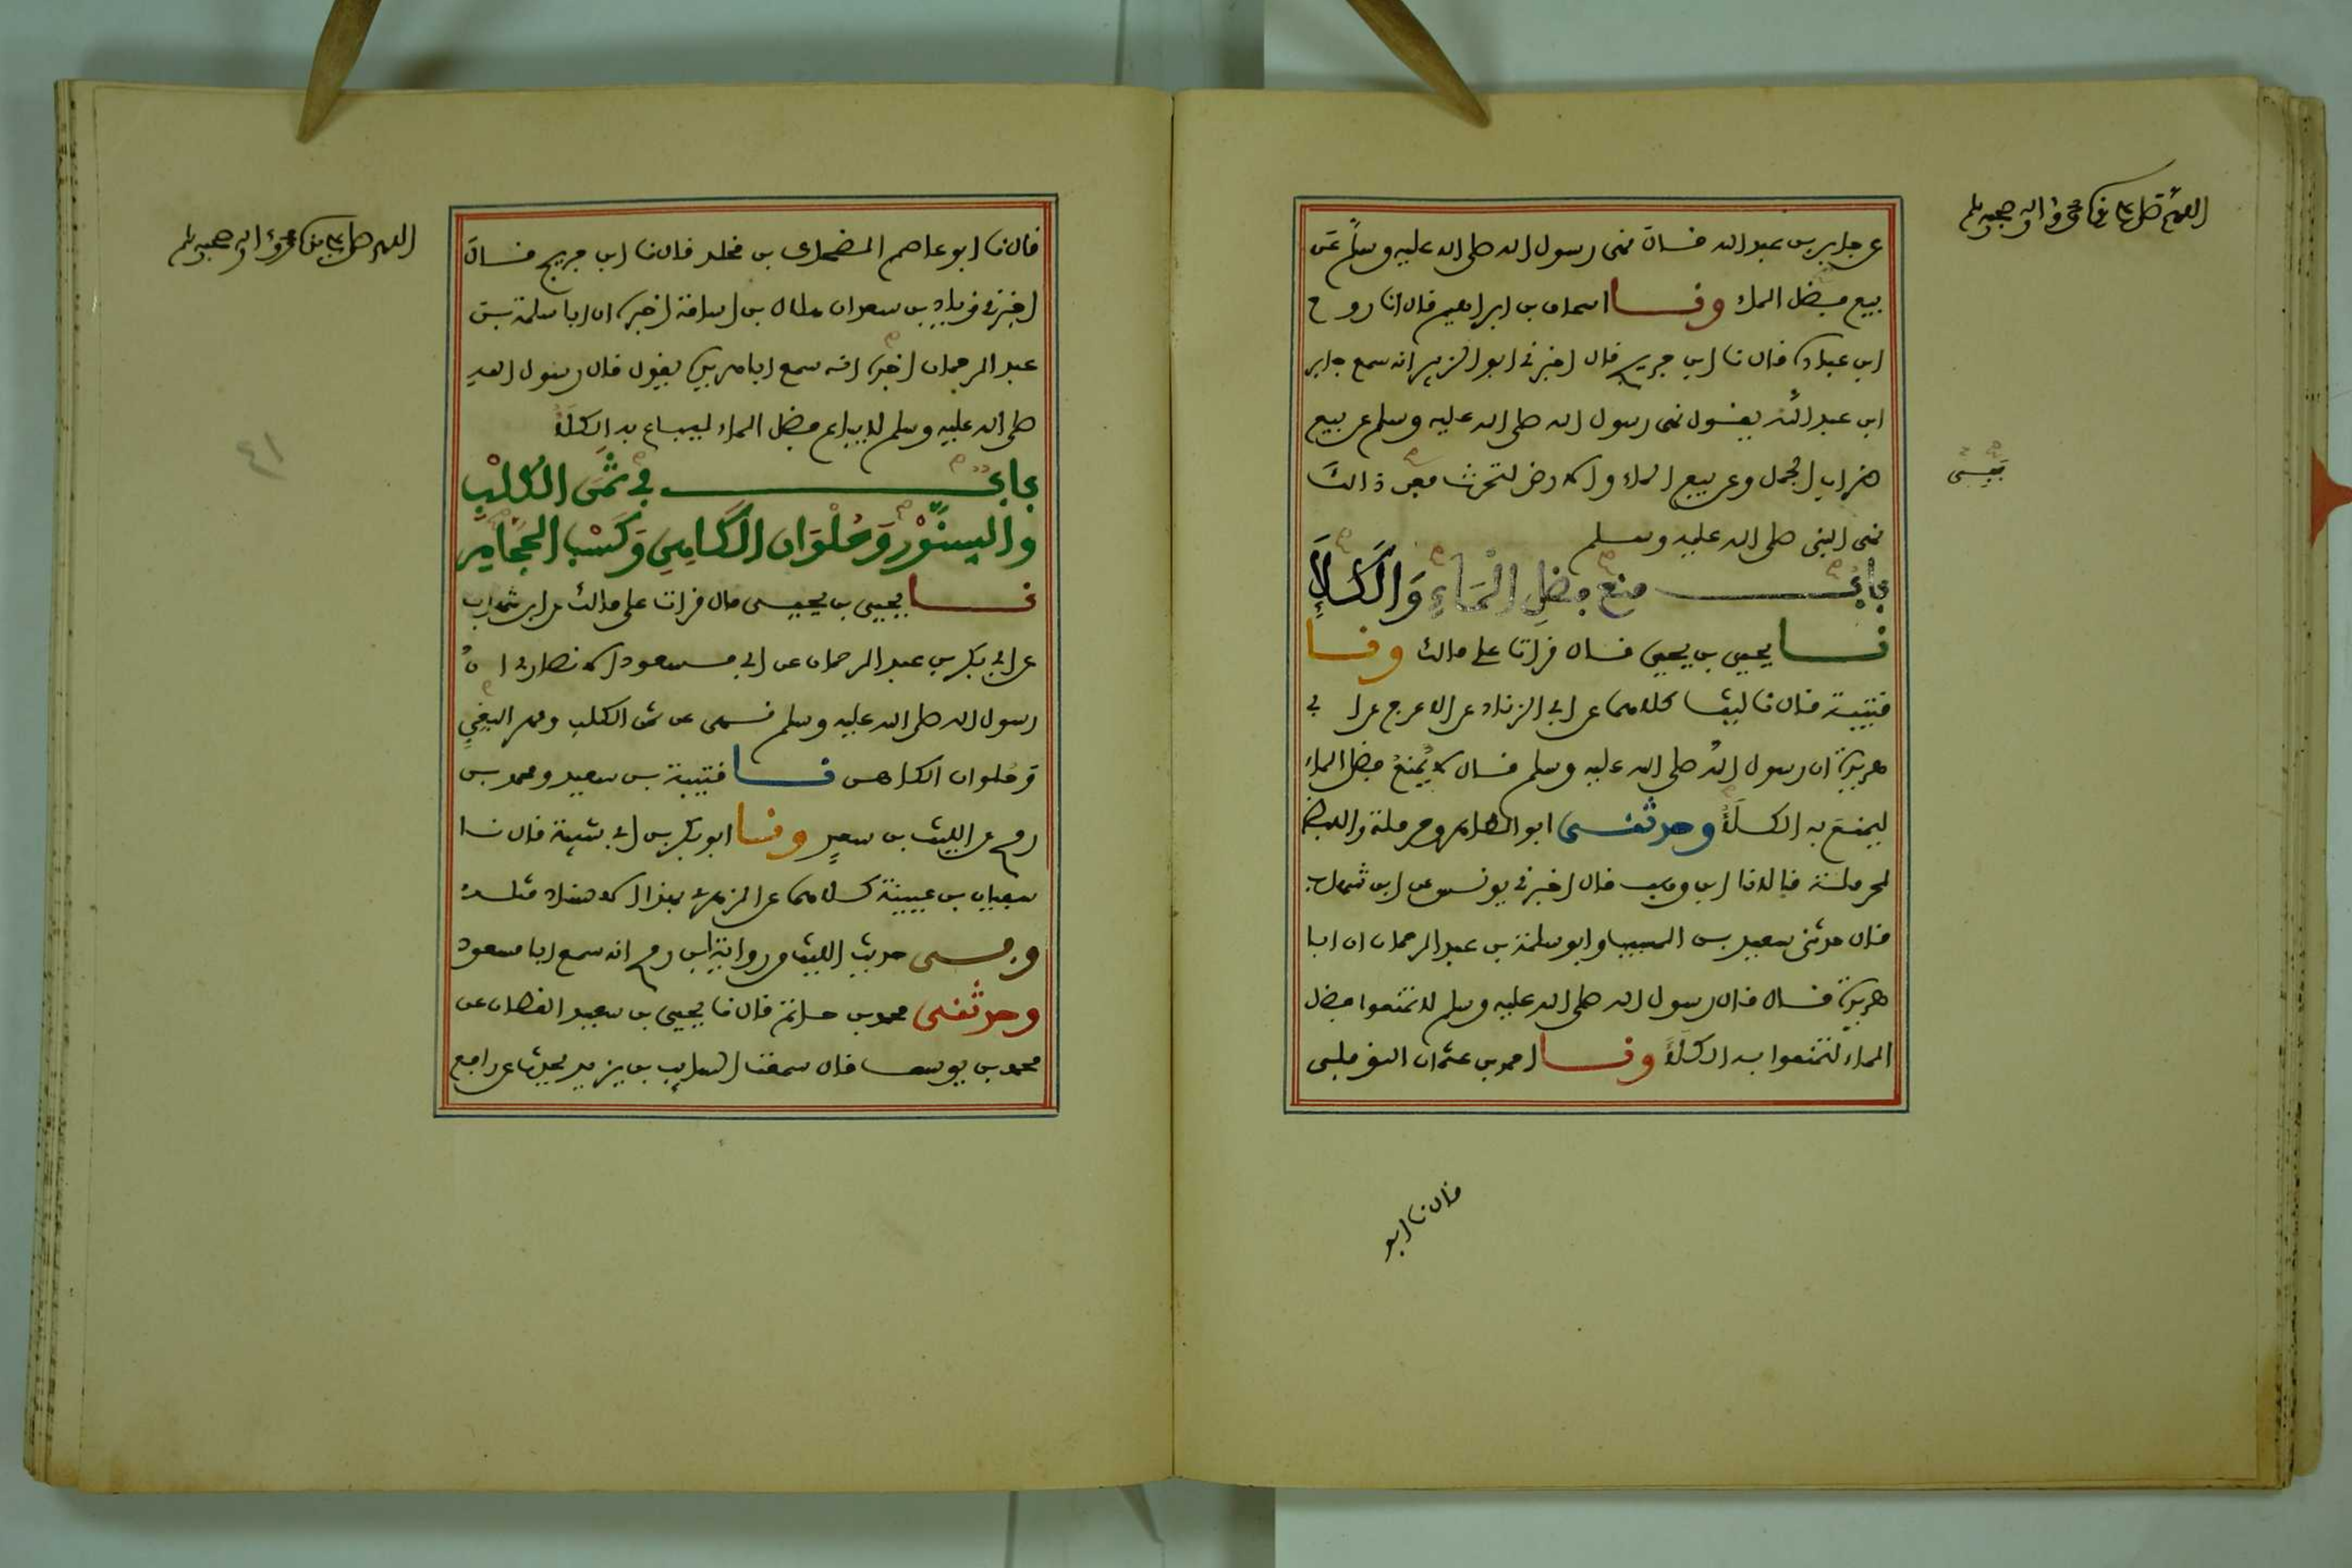 اللهم صل على سيدنا محمد وآله وصحبه وسلم
عن جابر بن عبد الله فال نهى رسول الله صلى الله عليه وسلم عن
بيع فضل الماء ونا اسحاق بن ابراهيم فال انا روح
ابن عبادة فال نا ابن جريج فال اخبرني ابو الزبير انه سمع جابر
ابن عبد الله يفول نهى رسول الله صلى الله عليه وسلم عن بيع
ضراب الجمل وعن بيع الماء والارض لتحرث فعن ذالك
نهى النبي صلى الله عليه وسلم
فعن
باب منع فضل الماء والكلإ
نا يحيى بن يحيى فال فرات على مالك ونا
فتيبة فال نا ليث كلاهما عن ابي الزناد عن الاعرج عن ابي
هريرة ان رسول الله صلى الله عليه وسلم فال لا يمنع فضل الماء
ليمنع به الكلأ وحدثني ابو الطاهر وحرملة واللفظ
لحرملة فالا نا ابن وهب فال اخبرني يونس عن ابن شهاب
فال حدثني سعيد بن المسيب وابو سلمة بن عبد الرحمان ان ابا
هريرة فال فال رسول الله صلى الله عليه وسلم لا تمنعوا فضل
الماء لتمنعوا به الكلأ ونا احمد بن عثمان النوفلي
فال نا ابو
اللهم صل على سيدنا محمد وآله وصحبه وسلم
فال نا ابو عاصم الضحاك بن مخلد فال نا ابن جريج فال
اخبرني زياد بن سعد ان هلال بن اسامة اخبره ان ابا سلمة بن
عبد الرحمان اخبره انه سمع ابا هريرة يفول فال رسول الله
صلى الله عليه وسلم لا يباع فضل الماء ليباع به الكلأ
باب في ثمن الكلب
والسنور وحلوان الكاهن وكسب الحجام
نا يحيى بن يحيى فال فرات على مالك عن ابن شهاب
عن ابي بكر بن عبد الرحمان عن ابي مسعود الانصاري ان
رسول الله صلى الله عليه وسلم نهى عن ثمن الكلب ومهر البغي
وحلوان الكاهن نا فتيبة بن سعيد ومحمد بن
رمح عن الليث بن سعد ونا ابو بكر بن ابي شيبة فال نا
سفيان بن عيينة كلاهما عن الزهري بهذا الاسناد مثله
وفي حديث الليث من رواية ابن رمح انه سمع ابا مسعود
وحدثني محمد بن حاتم فال نا يحيى بن سعيد الفطان عن
محمد بن يوسف فال سمعت السايب بن يزيد يحدث عن رافع